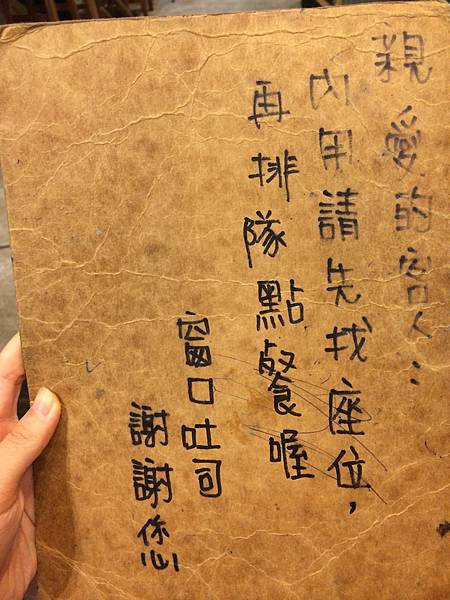 親愛的客人:
內用請先找座位，
再排隊點餐喔
窗口吐司
謝謝您